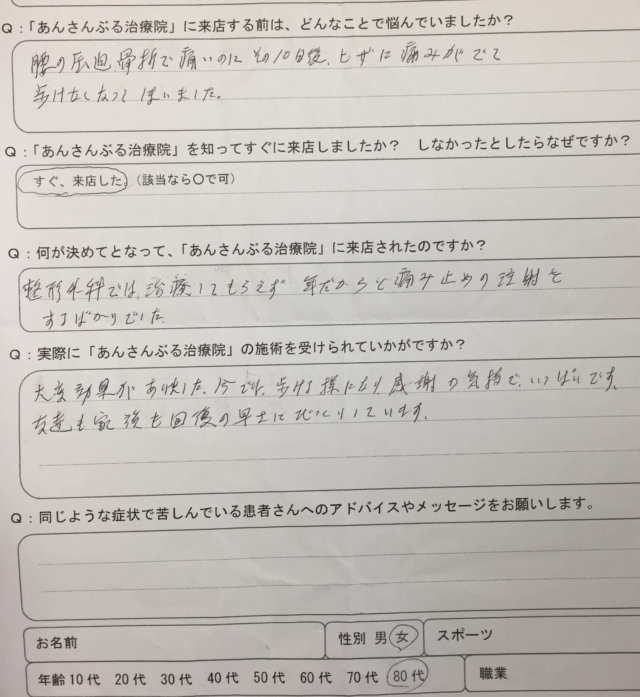 Q：「あんさんぶる治療院」に来店する前は、どんなことで悩んでいましたか？
腰の圧迫骨折で痛いのにその10日後、ヒザに痛みがでて
歩けなくなってしまいました。
Q：「あんさんぶる治療院」を知ってすぐに来店しましたか？　しなかったとしたらなぜですか？
すぐ、来店した。（該当なら〇で可）
Q：何が決めてとなって、「あんさんぶる治療院」に来店されたのですか？
整形外科では、治療してもらえず 年だからと痛み止めの注射を
するばかりでした。
Q：実際に「あんさんぶる治療院」の施術を受けられていかがですか？
大変効果がありました。今では、歩ける様になり、感謝の気持で、いっぱいです。
友達も家族も回復の早さにびっくりしています。
Q：同じような症状で苦しんでいる患者さんへのアドバイスやメッセージをお願いします。
お名前 性別 男 女 スポーツ
年齢 10代 20代 30代 40代 50代 60代 70代 80代 職業